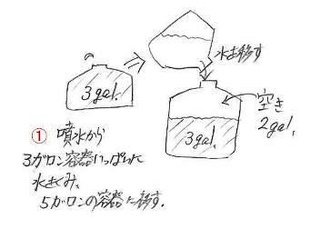 3gal.
水を移す
空き
2gal.
3gal.
① 噴水から
3ガロン容器いっぱいに
水をくみ、
5ガロンの容器に移す。